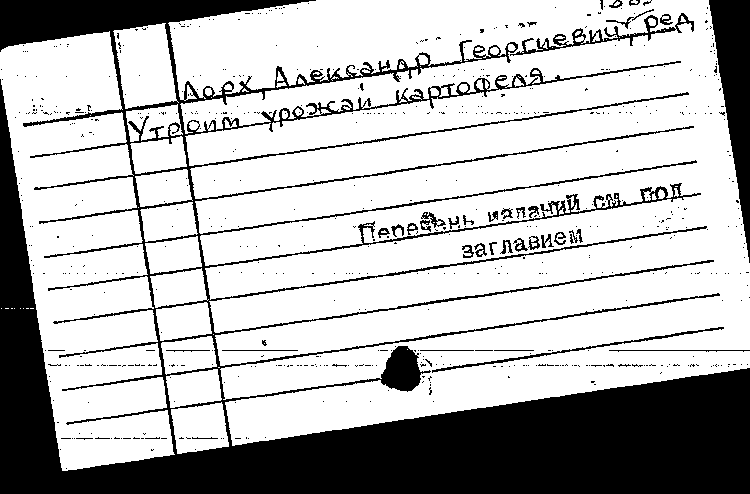 Лорх, Александр Георгиевич, ред.
Утроим урожай картофеля.
Перечень изданий см. под
заглавием